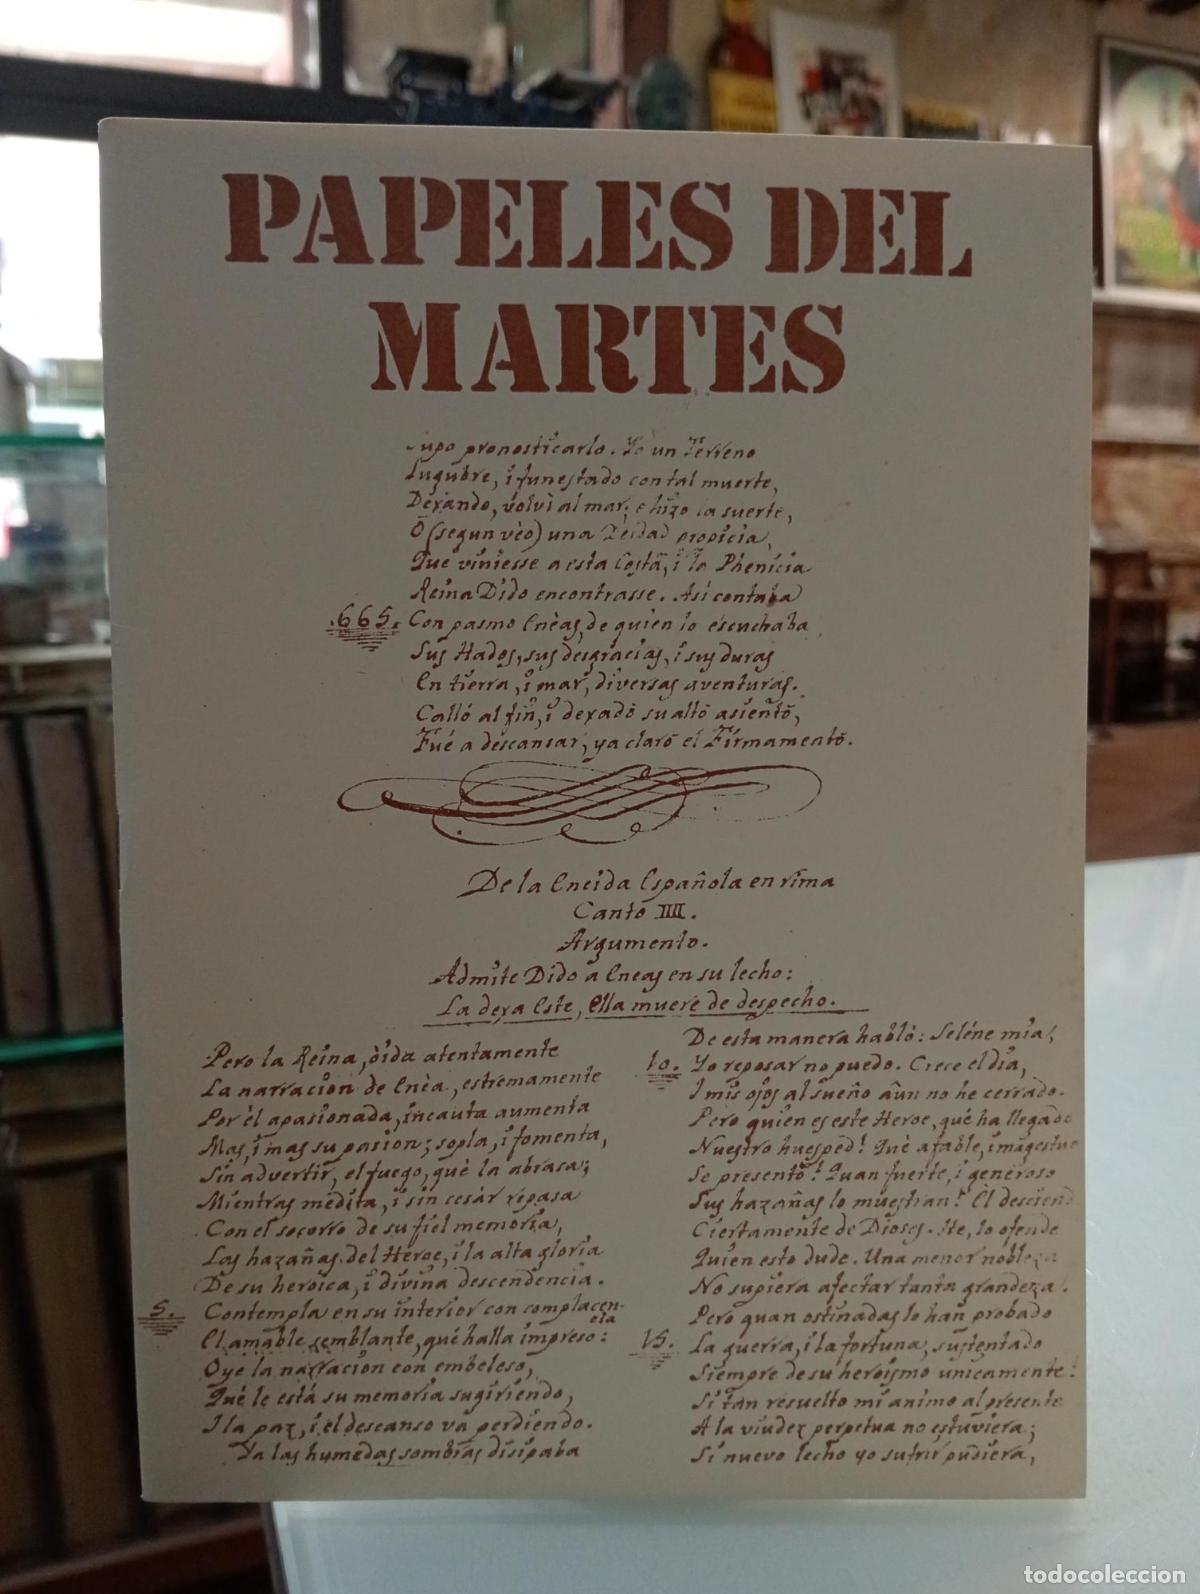 PAPELES DEL
MARTES
supo pronosticarlo. Yo un Terreno
Lugubre, i funestado con tal muerte,
Dexando, volvì al mar; e hizo la suerte,
Ō (segun vèo) una Deidad propicia,
Que viniesse a esta Costa, i la Phenicia
Reina Dido encontrasse. Asi contaba
.665. Con pasmo Enèas, de quièn lo escuchaba,
Sus Hados, sus desgracias, i sus duras
En tierra, i mar, diversas aventuras.
Calló al fin, i dexado su alto asiento,
Fué a descansar; ya claro el Firmamento.
De la Eneida Española en rima
Canto IIII.
Argumento.
Admite Dido à Eneas en su lecho:
La dexa Este, Ella muere de despecho.
Pero la Reina, òida atentamente
La narracion de Enèa, estremamente
Por èl apasionada, incauta aumenta
Mas, i mas su pasion; sopla, i fomenta,
Sin advertir, el fuego, què la abrasa;
Mientras medita, i sin cesàr repasa
Con el socorro de su fiel memoria,
Las hazañas del Hèroe, i la alta gloria
De su heroica, i divina descendencia.
5. Contempla en su interior con complacen-
cia
El amable semblante, què halla impreso:
Oye la narracion con embeleso,
Què le està su memoria sugiriendo,
I la paz, i el descanso và perdiendo.
Ya las humedas sombras disipaba
De esta manera hablò: Selène mia,
10. Yo reposar no puedo. Crece el dia,
I mis ojos al sueño àun no he cerrado.
Pero quièn es este Heroe, què ha llegado
Nuestro huesped! Què afable, i magestuo
Se presentò! Quan fuerte, i generoso
Sus hazañas lo muestran! El desciend
Ciertamente de Dioses. Ste, lo ofende
Quien esto dude. Una menor nobleza
No supiera afectar tanta grandeza.
Pero quan ostinadas lo han probado
15. La guerra, i la fortuna, sustentado
Siempre de su heroismo unicamente!
Si tan resuelto mi animo al presente
A la viudez perpetua no estuviera;
Si nuevo lecho yo sufrir pudiera,
todocoleccion